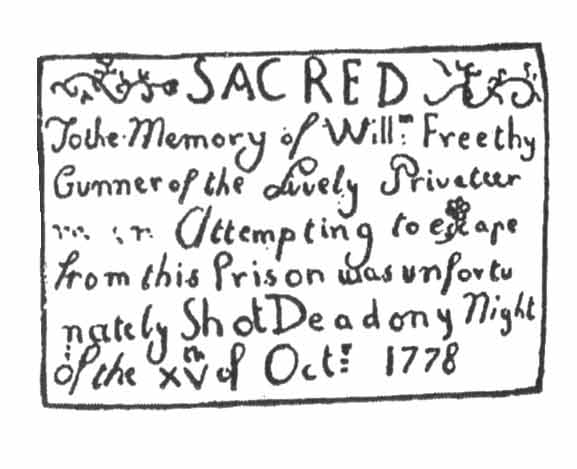 SACRED
To the Memory of Will.m Freethy
Gunner of the Lively Privateer
Attempting to escape
from this Prison was unfortu
nately Shot Dead on y Night
of the XVth of Oct.r 1778